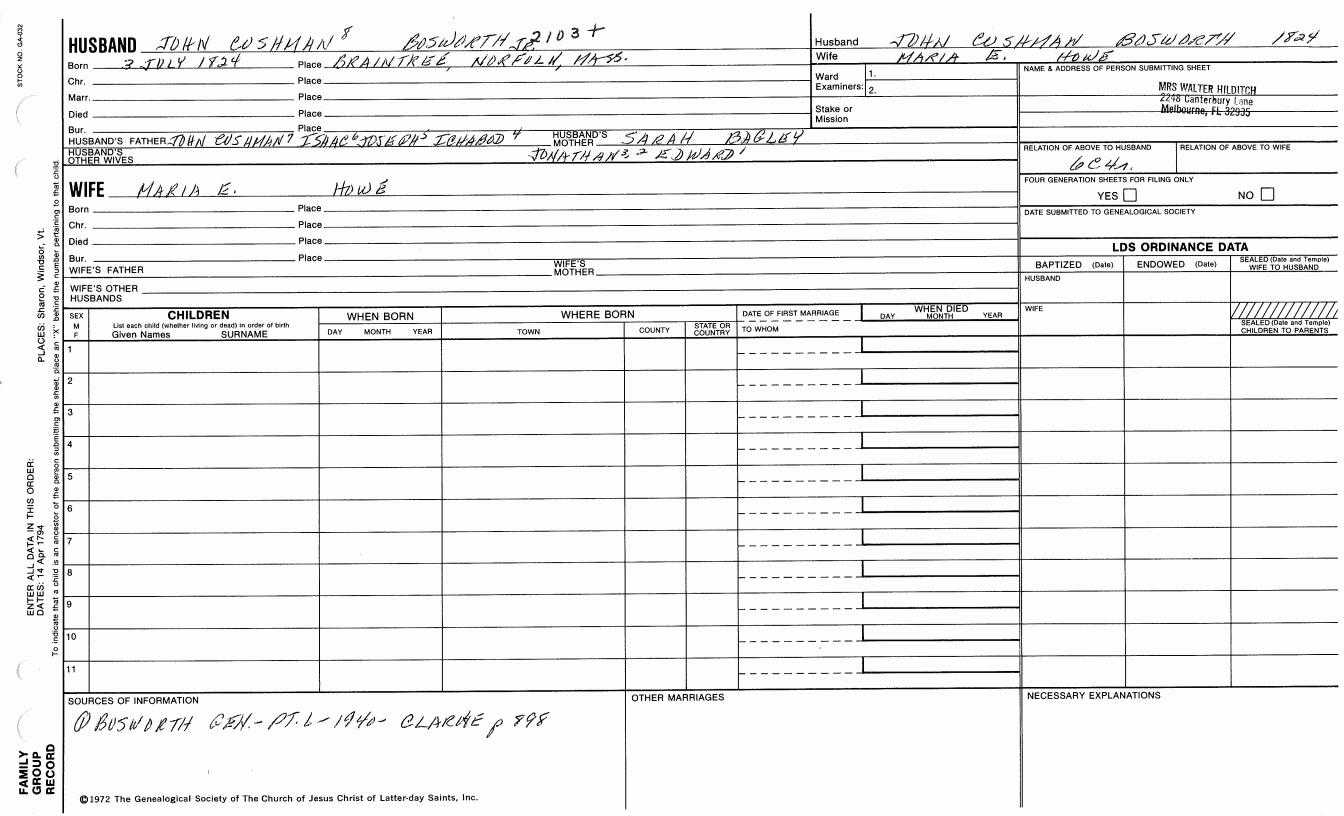 STOCK NO. GA-032
HUSBAND JOHN CUSHMAN 8 BOSWORTH JR. 2103+
Born 3 JULY 1824 Place BRAINTREE, NORFOLK, MASS.
Chr. Place
Marr. Place
Died Place
Bur. Place
HUSBAND'S FATHER JOHN CUSHMAN 7 ISAAC 6 JOSEPH 5 ICHABOD 4 HUSBAND'S MOTHER SARAH BAGLEY
HUSBAND'S OTHER WIVES JONATHAN 3, 2 EDWARD 1
Husband JOHN CUSHMAN BOSWORTH 1824
Wife MARIA E. HOWE
Ward Examiners: 1.
2.
Stake or Mission
NAME & ADDRESS OF PERSON SUBMITTING SHEET
MRS WALTER HILDITCH
2248 Canterbury Lane
Melbourne, FL 32935
RELATION OF ABOVE TO HUSBAND RELATION OF ABOVE TO WIFE
6C4r.
FOUR GENERATION SHEETS FOR FILING ONLY
YES NO
DATE SUBMITTED TO GENEALOGICAL SOCIETY
WIFE MARIA E. HOWE
Born Place
Chr. Place
Died Place
Bur. Place
WIFE'S FATHER WIFE'S MOTHER
WIFE'S OTHER HUSBANDS
LDS ORDINANCE DATA
BAPTIZED (Date) ENDOWED (Date) SEALED (Date and Temple) WIFE TO HUSBAND
HUSBAND
WIFE
SEALED (Date and Temple) CHILDREN TO PARENTS
SEX M F
CHILDREN
List each child (whether living or dead) in order of birth
Given Names SURNAME
WHEN BORN
DAY MONTH YEAR
WHERE BORN
TOWN COUNTY STATE OR COUNTRY
DATE OF FIRST MARRIAGE
TO WHOM
WHEN DIED
DAY MONTH YEAR
1
2
3
4
5
6
7
8
9
10
11
SOURCES OF INFORMATION
① BOSWORTH GEN.- PT. 6 - 1940- CLARKE p 898
OTHER MARRIAGES
NECESSARY EXPLANATIONS
©1972 The Genealogical Society of The Church of Jesus Christ of Latter-day Saints, Inc.
FAMILY
GROUP
RECORD
ENTER ALL DATA IN THIS ORDER:
DATES: 14 Apr 1794 PLACES: Sharon, Windsor, Vt.
To indicate that a child is an ancestor of the person submitting the sheet, place an "X" behind the number pertaining to that child